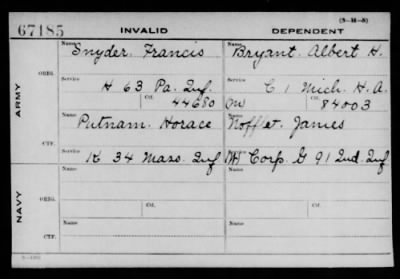 (3-H-8)
67485 INVALID DEPENDENT
Name Snyder. Francis Name Bryant. Albert H.
ORIG.
Service H 63 Pa. Inf. Service C 1 Mich. H. A.
Ctf. 44680 (M) Ctf. 84003
ARMY
Name Putnam. Horace Name Nofflet. James
CTF.
Service K 34 Mass. Inf Service (M) Corp. G 91 Ind. Inf.
Name Name
ORIG.
Service Ctf. Service Ctf.
NAVY
Name Name
CTF.